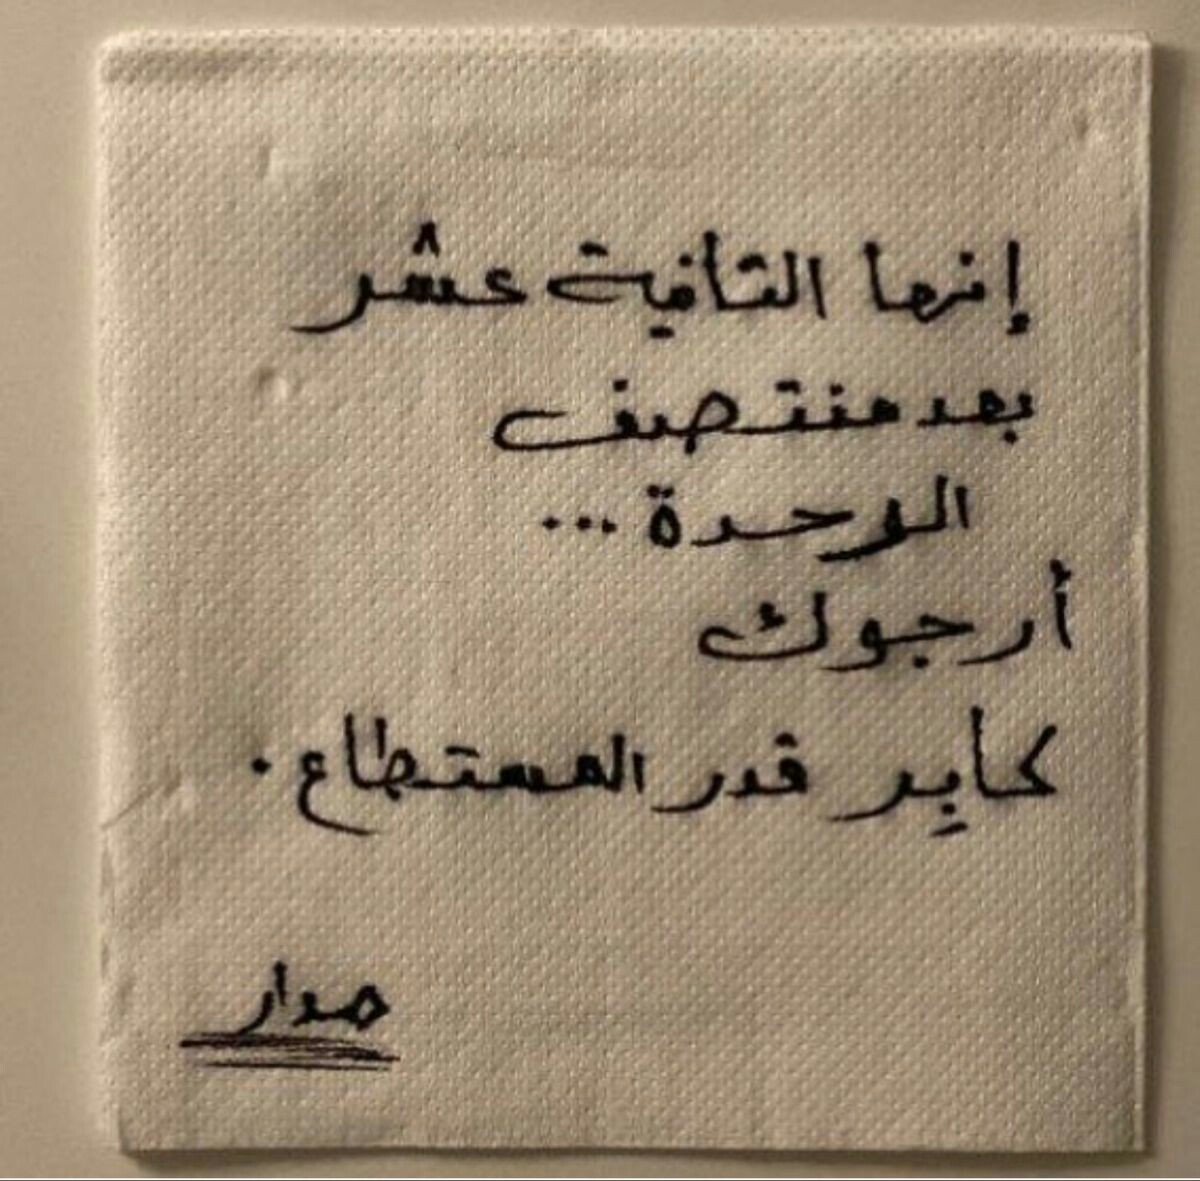 إنها الثانية عشر
بعد منتصف
الوحدة ...
أرجوك
كابِر قدر المستطاع.
مدار